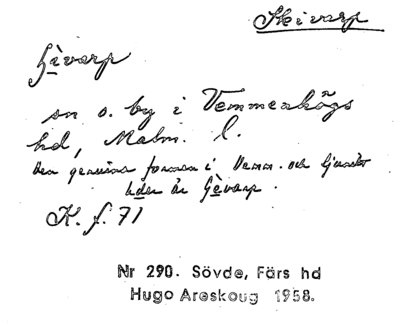 Skivarp
hèvarp
sn o. by i Vemmenhögs
hd, Malm. l.
Den genuina formen i Vemm. och Ljunits
hder är hèvarp.
K. f. 71
Nr 290. Sövde, Färs hd
Hugo Areskoug 1958.